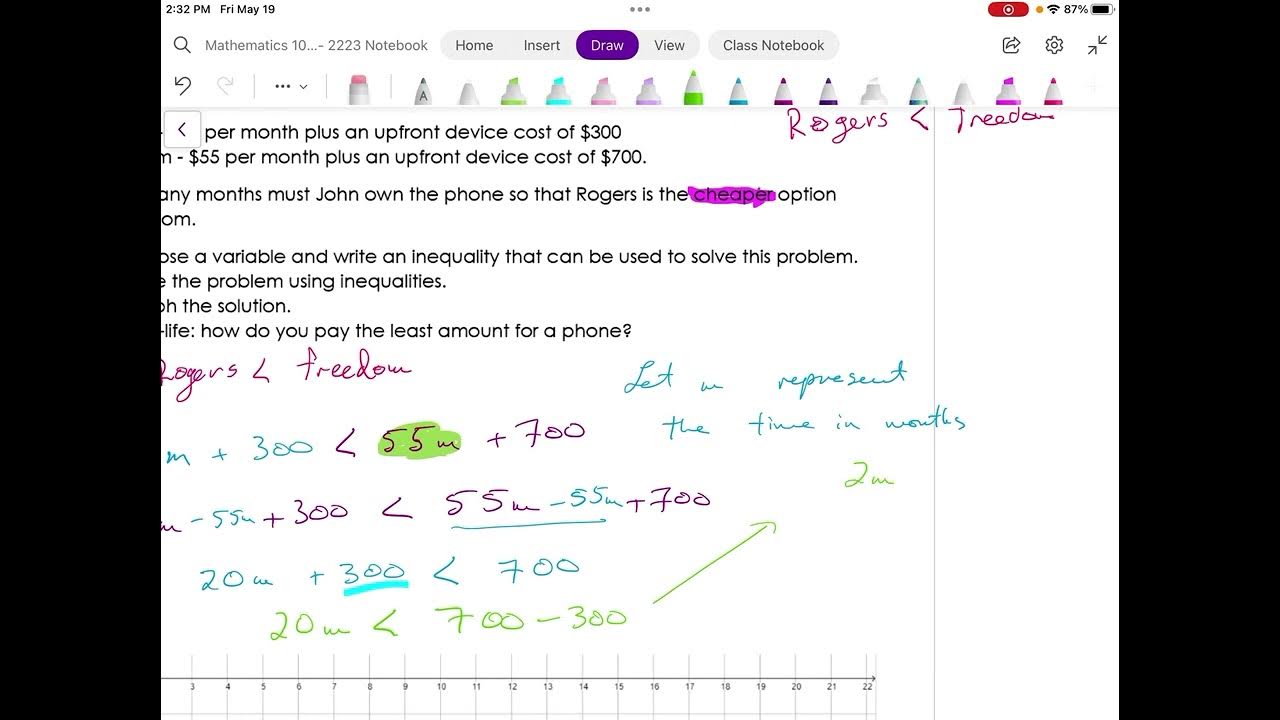 2:32 PM Fri May 19
87%
Mathematics 10...- 2223 Notebook Home Insert Draw View Class Notebook
A
per month plus an upfront device cost of $300
Rogers < Freedom
m - $55 per month plus an upfront device cost of $700.
any months must John own the phone so that Rogers is the cheaper option
om.
ose a variable and write an inequality that can be used to solve this problem.
e the problem using inequalities.
ph the solution.
-life: how do you pay the least amount for a phone?
Rogers < freedom
Let m represent
the time in months
m + 300 < 55m + 700
2m
m - 55m + 300 < 55m - 55m + 700
20m + 300 < 700
20m < 700 - 300
3 4 5 6 7 8 9 10 11 12 13 14 15 16 17 18 19 20 21 22